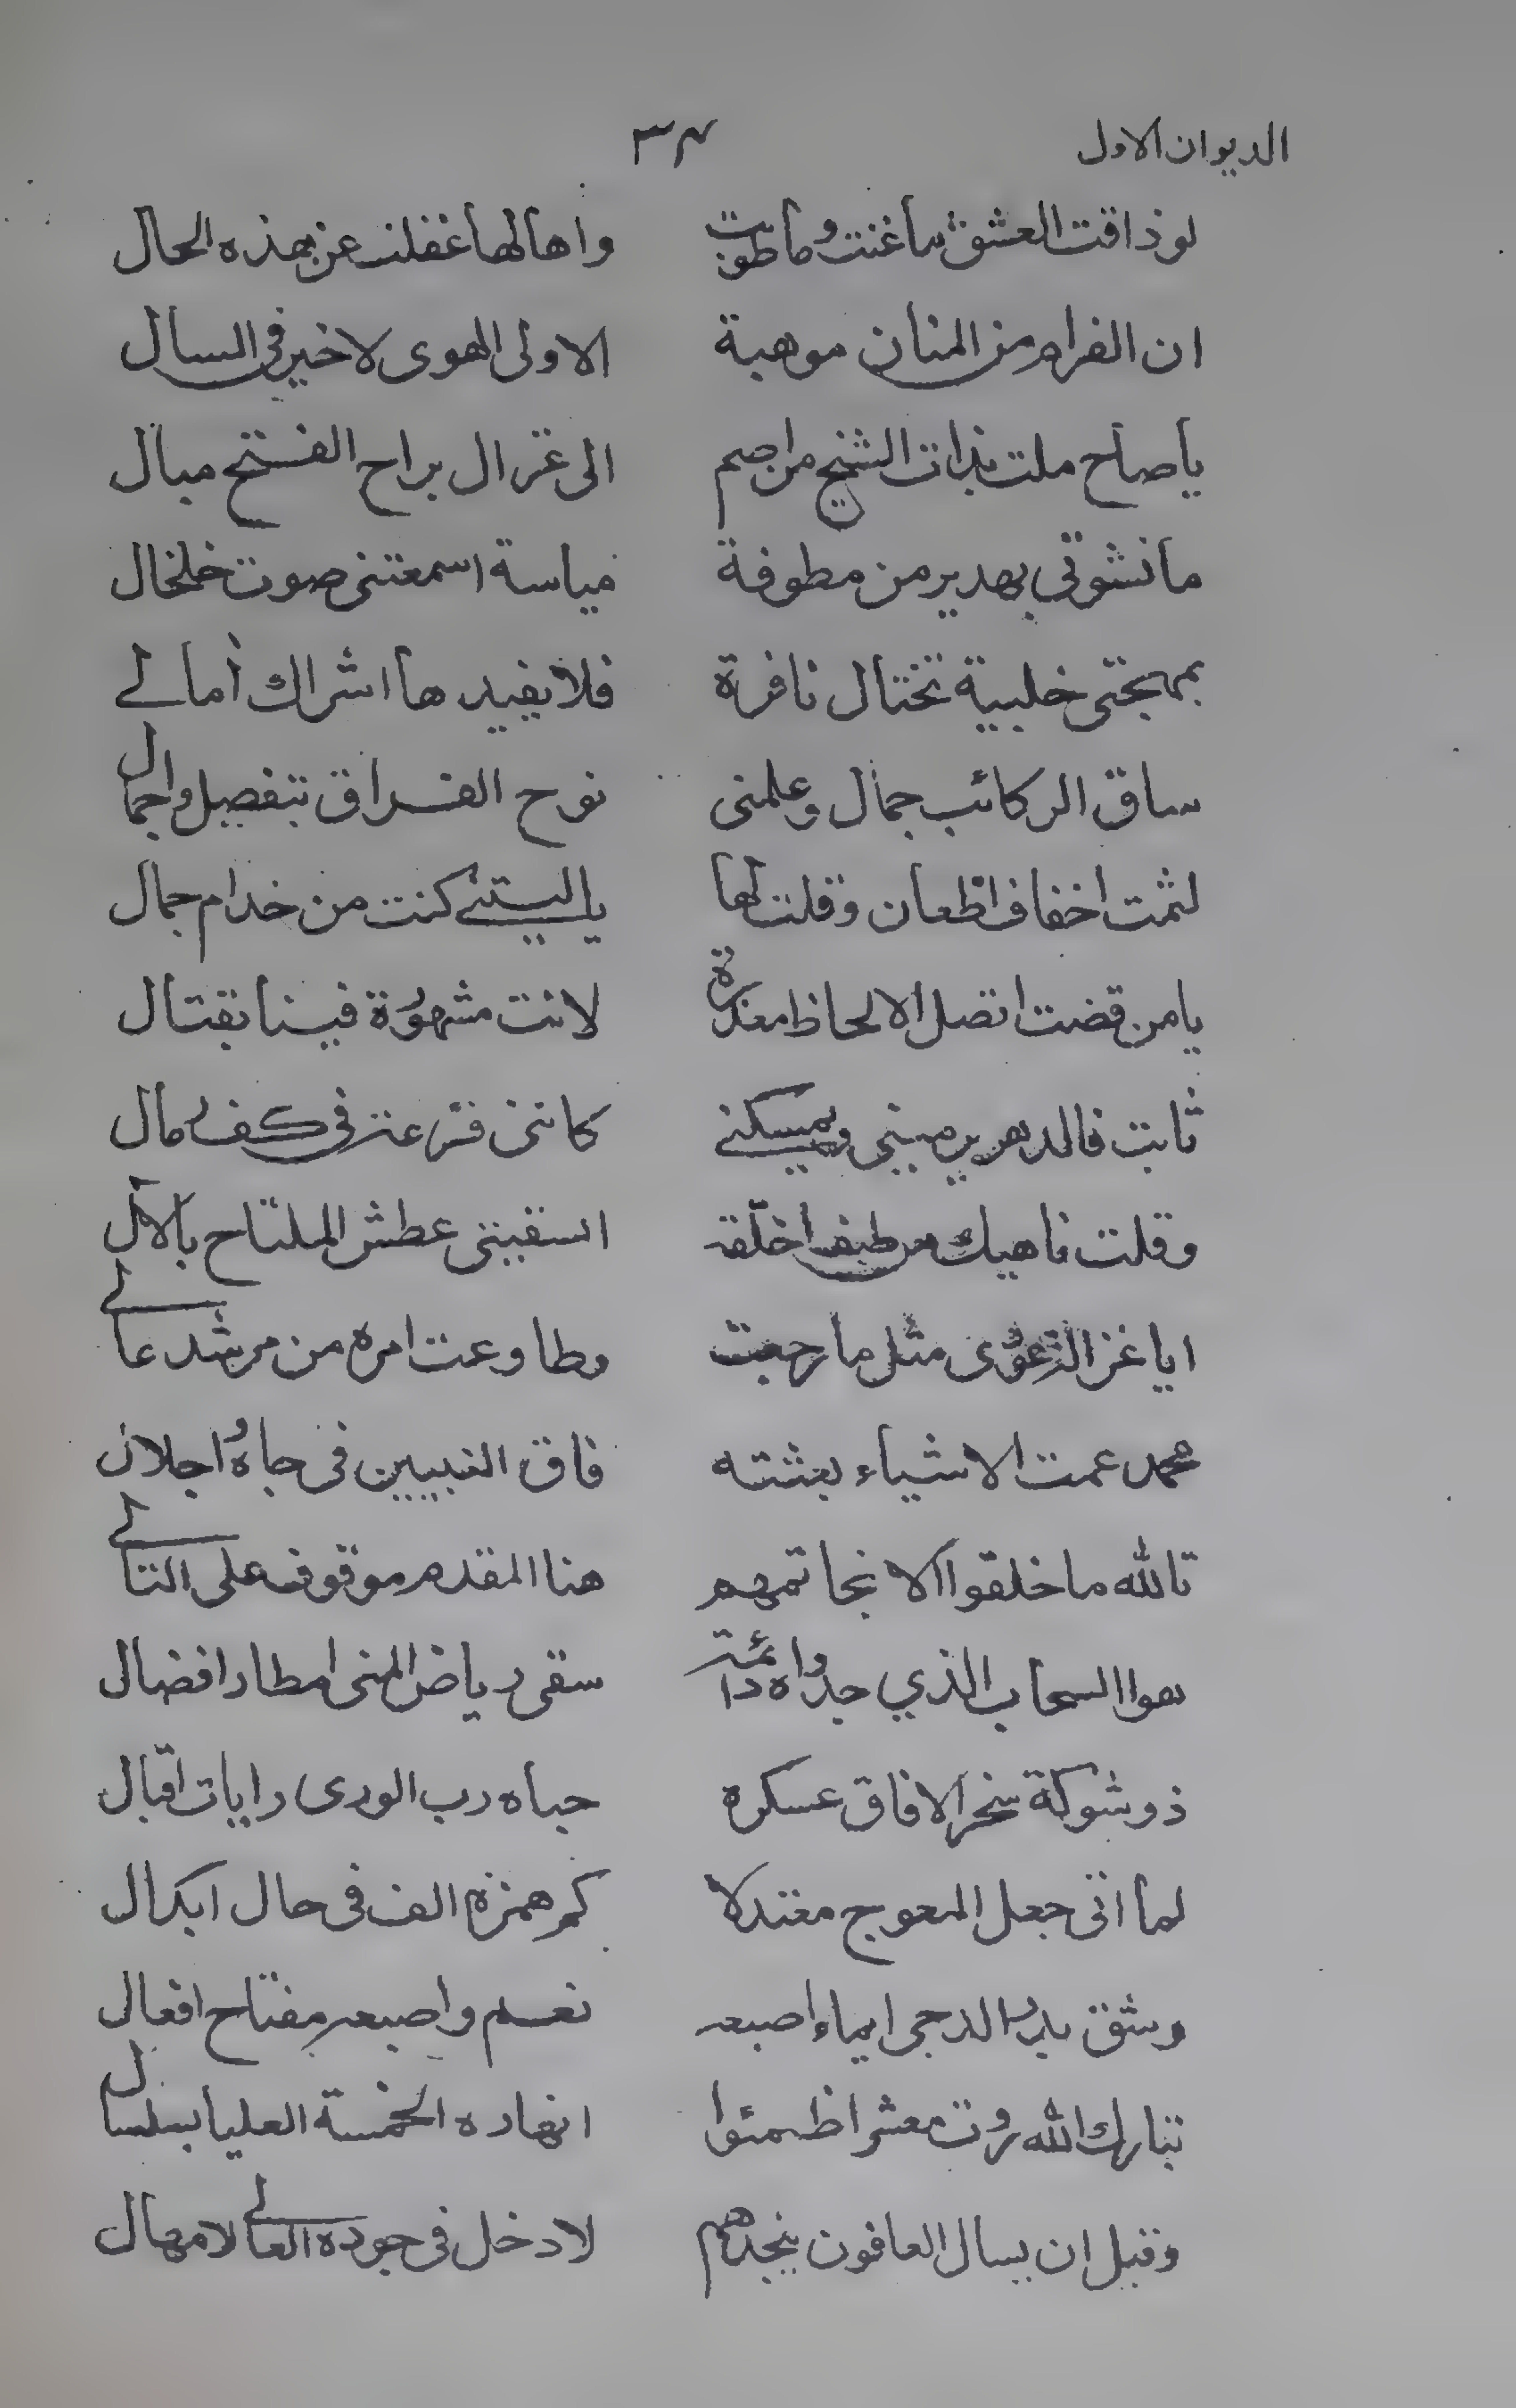 الديوان الاول ٣٤
لو ذاقت العشق ما غنت وما طربت واها لها غفلت عن هذه الحال
ان الغرام من المنان موهبة الا ولى الهوى لا خير فى السال
يا صاح ملت بذات الشيح من اضم الى غزال براح الفنتح ميال
ما نشوتى بهدير من مطوفة مياسة اسمعتنى صوت خلخال
بمهجتى خلبية تختال نافرة فلا يفيدها اشراك أمالے
ساق الركائب جمال وعلمنى نوح الفراق بتفصيل واجمال
لثمت اخفاف اظعان وقلت لها يا ليتنے كنت من خدام جمال
يا من قضت اتصل الالحاظ معذرة لانت مشهوُرة فينا بقتال
ثابت فالدهر يرمينى ويمسكنے كاننى فى كف مال
وقلت ناهيك من طيف اخلّقه اتسقيننى عطش الملتاح بالآل
ايا غزالة مثل ما رجعت وطاوعت امره من مرشد عالے
محمد عمت الاشياء بعثته فاق النبيين فى جاه واجلال
تالله ما خلقوا الا بخاتمهم هنا المقدم موقوف على التالے
هوا السحاب الذي جدواه دائمة سقى رياض المنى امطار افضال
ذو شوكة سخر الافاق عسكره حباه رب الورى رايات اقبال
لما اتى جعل المعوج معتدلا كم همزة الف فى حال ابدال
وشق بدر الدجى ايماء اصبعه نعم واصبعه مفتاح اقفال
تبارك الله روت معشرا ظمئوا انهاره الخمسة العليا بسلسال
وقبل ان يسال العافون ينجدهم لا دخل فى جوده العالے لامهال